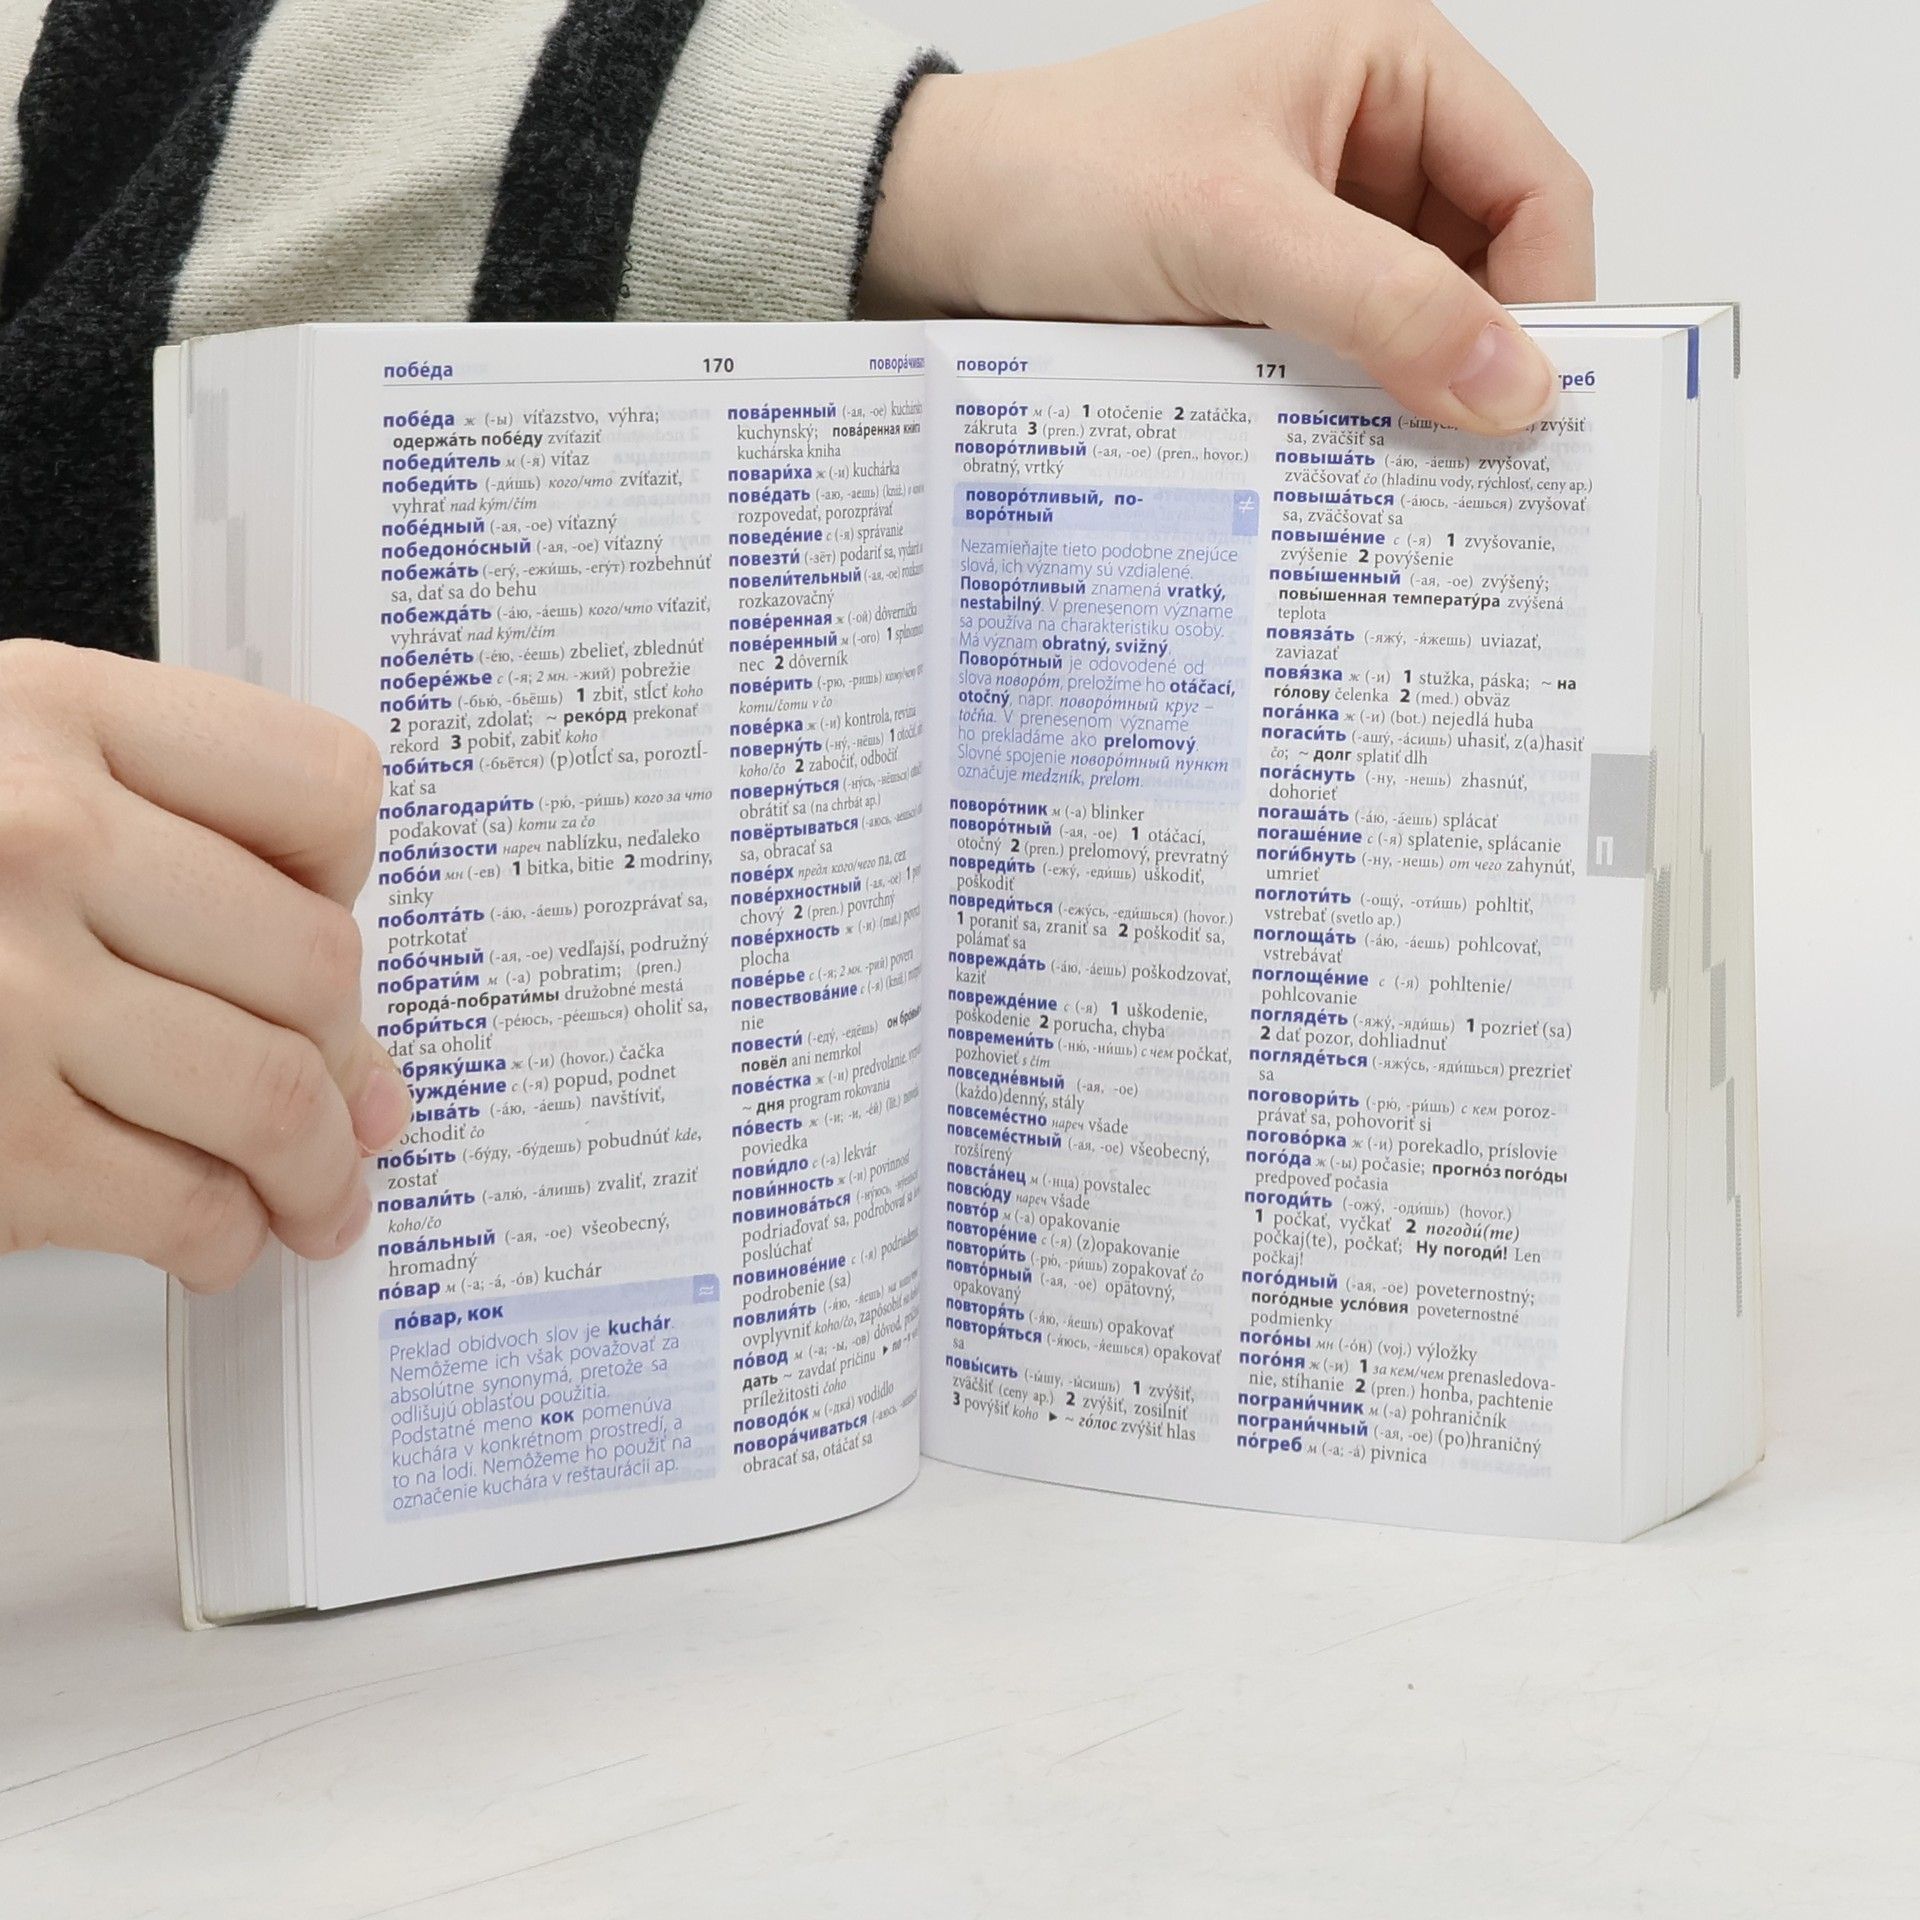 побе́да 170
побе́да ж (-ы) víťazstvo, výhra;
одержа́ть побе́ду zvíťaziť
победи́тель м (-я) víťaz
победи́ть (-ди́шь) кого/что zvíťaziť,
vyhrať nad kým/čím
побе́дный (-ая, -ое) víťazný
победоно́сный (-ая, -ое) víťazný
побежа́ть (-егу́, -ежи́шь, -егу́т) rozbehnúť
sa, dať sa do behu
побежда́ть (-а́ю, -а́ешь) кого/что víťaziť,
vyhrávať nad kým/čím
побеле́ть (-е́ю, -е́ешь) zbelieť, zblednúť
побере́жье с (-я; 2 мн. -жий) pobrežie
поби́ть (-бью́, -бьёшь) 1 zbiť, stĺcť koho
2 poraziť, zdolať; ~ реко́рд prekonať
rekord 3 pobiť, zabiť koho
поби́ться (-бьётся) (p)otĺcť sa, poroztĺ-
kať sa
поблагодари́ть (-рю́, -ри́шь) кого за что
poďakovať (sa) komu za čo
побли́зости нареч nablízku, neďaleko
побо́и мн (-ев) 1 bitka, bitie 2 modriny,
sinky
поболта́ть (-а́ю, -а́ешь) porozprávať sa,
potrkotať
побо́чный (-ая, -ое) vedľajší, podružný
побрати́м м (-а) pobratim; (pren.)
города́-побрати́мы družobné mestá
побри́ться (-ре́юсь, -ре́ешься) oholiť sa,
dať sa oholiť
бряку́шка ж (-и) (hovor.) čačka
бужде́ние с (-я) popud, podnet
ыва́ть (-а́ю, -а́ешь) navštíviť,
ochodiť čo
побы́ть (-бу́ду, -бу́дешь) pobudnúť kde,
zostať
повали́ть (-алю́, -а́лишь) zvaliť, zraziť
koho/čo
пова́льный (-ая, -ое) všeobecný,
hromadný
по́вар м (-а; -а́, -о́в) kuchár
по́вар, кок ≈
Preklad obidvoch slov je kuchár.
Nemôžeme ich však považovať za
absolútne synonymá, pretože sa
odlišujú oblasťou použitia.
Podstatné meno кок pomenúva
kuchára v konkrétnom prostredí, a
to na lodi. Nemôžeme ho použiť na
označenie kuchára v reštaurácii ap.
пова́ренный (-ая, -ое)
kuchynský; пова́ренная
kuchárska kniha
повари́ха ж (-и) kuchárka
пове́дать (-аю, -аешь) (kniž.)
rozpovedať, porozprávať
поведе́ние с (-я) správanie
повезти́ (-зёт) podariť sa,
повели́тельный (-ая, -ое)
rozkazovačný
пове́ренная ж (-ой) dôverníčka
пове́ренный м (-ого) 1
nec 2 dôverník
пове́рить (-рю, -ришь)
komu/čomu v čo
пове́рка ж (-и) kontrola, revízia
поверну́ть (-ну́, -нёшь) 1
koho/čo 2 zabočiť, odbočiť
поверну́ться (-ну́сь, -нёшься)
obrátiť sa (na chrbát ap.)
повёртываться (-аюсь,
sa, obracať sa
пове́рх предл кого/чего na, cez
пове́рхностный (-ая, -ое) 1
chový 2 (pren.) povrchný
пове́рхность ж (-и) (mat.)
plocha
пове́рье с (-я; 2 мн. -рий) povera
повествова́ние с (-я) (kniž.)
nie
повести́ (-еду́, -едёшь)
повёл ani nemrkol
пове́стка ж (-и) predvolanie,
~ дня program rokovania
по́весть ж (-и; -и, -е́й) (lit.)
poviedka
пови́дло с (-а) lekvár
пови́нность ж (-и) povinnosť
повинова́ться (-ну́юсь,
podriaďovať sa, podrobovať sa
poslúchať
повинове́ние с (-я)
podrobenie (sa)
повлия́ть (-я́ю, -я́ешь)
ovplyvniť koho/čo, zapôsobiť
по́вод м (-а; -ы, -ов) dôvod,
дать ~ zavdať príčinu
príležitosti čoho
поводо́к м (-дка́) vodidlo
повора́чиваться
obracať sa, otáčať sa
поворо́т 171 греб
поворо́т м (-а) 1 otočenie 2 zatáčka,
zákruta 3 (pren.) zvrat, obrat
поворо́тливый (-ая, -ое) (pren., hovor.)
obratný, vrtký
поворо́тливый, по- ≠
воро́тный
Nezamieňajte tieto podobne znejúce
slová, ich významy sú vzdialené.
Поворо́тливый znamená vratký,
nestabilný. V prenesenom význame
sa používa na charakteristiku osoby.
Má význam obratný, svižný.
Поворо́тный je odovodené od
slova поворо́т, preložíme ho otáčací,
otočný, napr. поворо́тный круг –
točňa. V prenesenom význame
ho prekladáme ako prelomový.
Slovné spojenie поворо́тный пункт
označuje medzník, prelom.
поворо́тник м (-а) blinker
поворо́тный (-ая, -ое) 1 otáčací,
otočný 2 (pren.) prelomový, prevratný
повреди́ть (-ежу́, -еди́шь) uškodiť,
poškodiť
повреди́ться (-ежу́сь, -еди́шься) (hovor.)
1 poraniť sa, zraniť sa 2 poškodiť sa,
polámať sa
поврежда́ть (-а́ю, -а́ешь) poškodzovať,
kaziť
поврежде́ние с (-я) 1 uškodenie,
poškodenie 2 porucha, chyba
повремени́ть (-ню́, -ни́шь) с чем počkať,
pozhovieť s čím
повседне́вный (-ая, -ое)
(každo)denný, stály
повсеме́стно нареч všade
повсеме́стный (-ая, -ое) všeobecný,
rozšírený
повста́нец м (-нца) povstalec
повсю́ду нареч všade
повто́р м (-а) opakovanie
повторе́ние с (-я) (z)opakovanie
повтори́ть (-рю́, -ри́шь) zopakovať čo
повто́рный (-ая, -ое) opätovný,
opakovaný
повторя́ть (-я́ю, -я́ешь) opakovať
повторя́ться (-я́юсь, -я́ешься) opakovať
sa
повы́сить (-ы́шу, -ы́сишь) 1 zvýšiť,
zväčšiť (ceny ap.) 2 zvýšiť, zosilniť
3 povýšiť koho ▶ ~ го́лос zvýšiť hlas
повы́ситься zvýšiť
sa, zväčšiť sa
повыша́ть (-а́ю, -а́ешь) zvyšovať,
zväčšovať čo (hladinu vody, rýchlosť, ceny ap.)
повыша́ться (-а́юсь, -а́ешься) zvyšovať
sa, zväčšovať sa
повыше́ние с (-я) 1 zvyšovanie,
zvýšenie 2 povýšenie
повы́шенный (-ая, -ое) zvýšený;
повы́шенная температу́ра zvýšená
teplota
повяза́ть (-яжу́, -я́жешь) uviazať,
zaviazať
повя́зка ж (-и) 1 stužka, páska; ~ на
го́лову čelenka 2 (med.) obväz
пога́нка ж (-и) (bot.) nejedlá huba
погаси́ть (-ашу́, -а́сишь) uhasiť, z(a)hasiť
čo; ~ долг splatiť dlh
пога́снуть (-ну, -нешь) zhasnúť,
dohorieť
погаша́ть (-а́ю, -а́ешь) splácať
погаше́ние с (-я) splatenie, splácanie
поги́бнуть (-ну, -нешь) от чего zahynúť,
umrieť
поглоти́ть (-ощу́, -оти́шь) pohltiť,
vstrebať (svetlo ap.)
поглоща́ть (-а́ю, -а́ешь) pohlcovať,
vstrebávať
поглоще́ние с (-я) pohltenie/
pohlcovanie
погляде́ть (-яжу́, -яди́шь) 1 pozrieť (sa)
2 dať pozor, dohliadnuť
погляде́ться (-яжу́сь, -яди́шься) prezrieť
sa
поговори́ть (-рю́, -ри́шь) с кем poroz-
právať sa, pohovoriť si
погово́рка ж (-и) porekadlo, príslovie
пого́да ж (-ы) počasie; прогно́з пого́ды
predpoveď počasia
погоди́ть (-ожу́, -оди́шь) (hovor.)
1 počkať, vyčkať 2 погоди́(те)
počkaj(te), počkať; Ну погоди́! Len
počkaj!
пого́дный (-ая, -ое) poveternostný;
пого́дные усло́вия poveternostné
podmienky
пого́ны мн (-о́н) (voj.) výložky
пого́ня ж (-и) 1 за кем/чем prenasledova-
nie, stíhanie 2 (pren.) honba, pachtenie
пограни́чник м (-а) pohraničník
пограни́чный (-ая, -ое) (po)hraničný
по́греб м (-а; -а́) pivnica
П